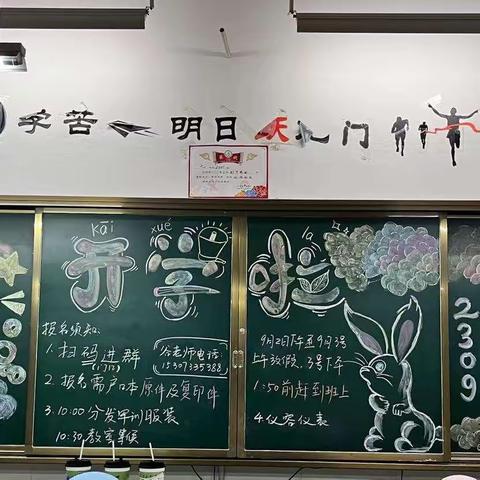 字苦
明日天门
kāi xué la
开学啦
报名须知:
1.扫码进群
2.报名需户口本原件及复印件
3.10:00分发军训服装
10:30教室等候
谷老师电话:
15307335388
9月2日下午至9月3号
上午放假,3号下午
1:50前赶到班上
4.仪容仪表
2309